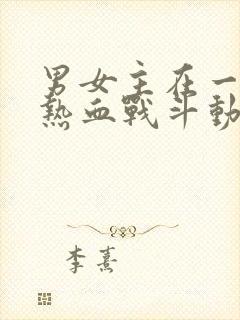 男女主在一
熱血戰斗動
李熹